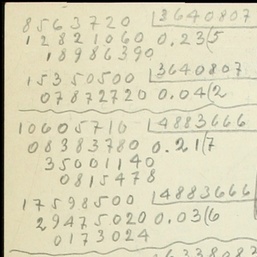 8563720 3640807
12821060 0.23(5
18986390
15350500 3640807
07872720 0.04(2
10605710 4883666
08383780 0.21(7
35001140
0815478
17598500 4883666
29475020 0.03(6
0173024